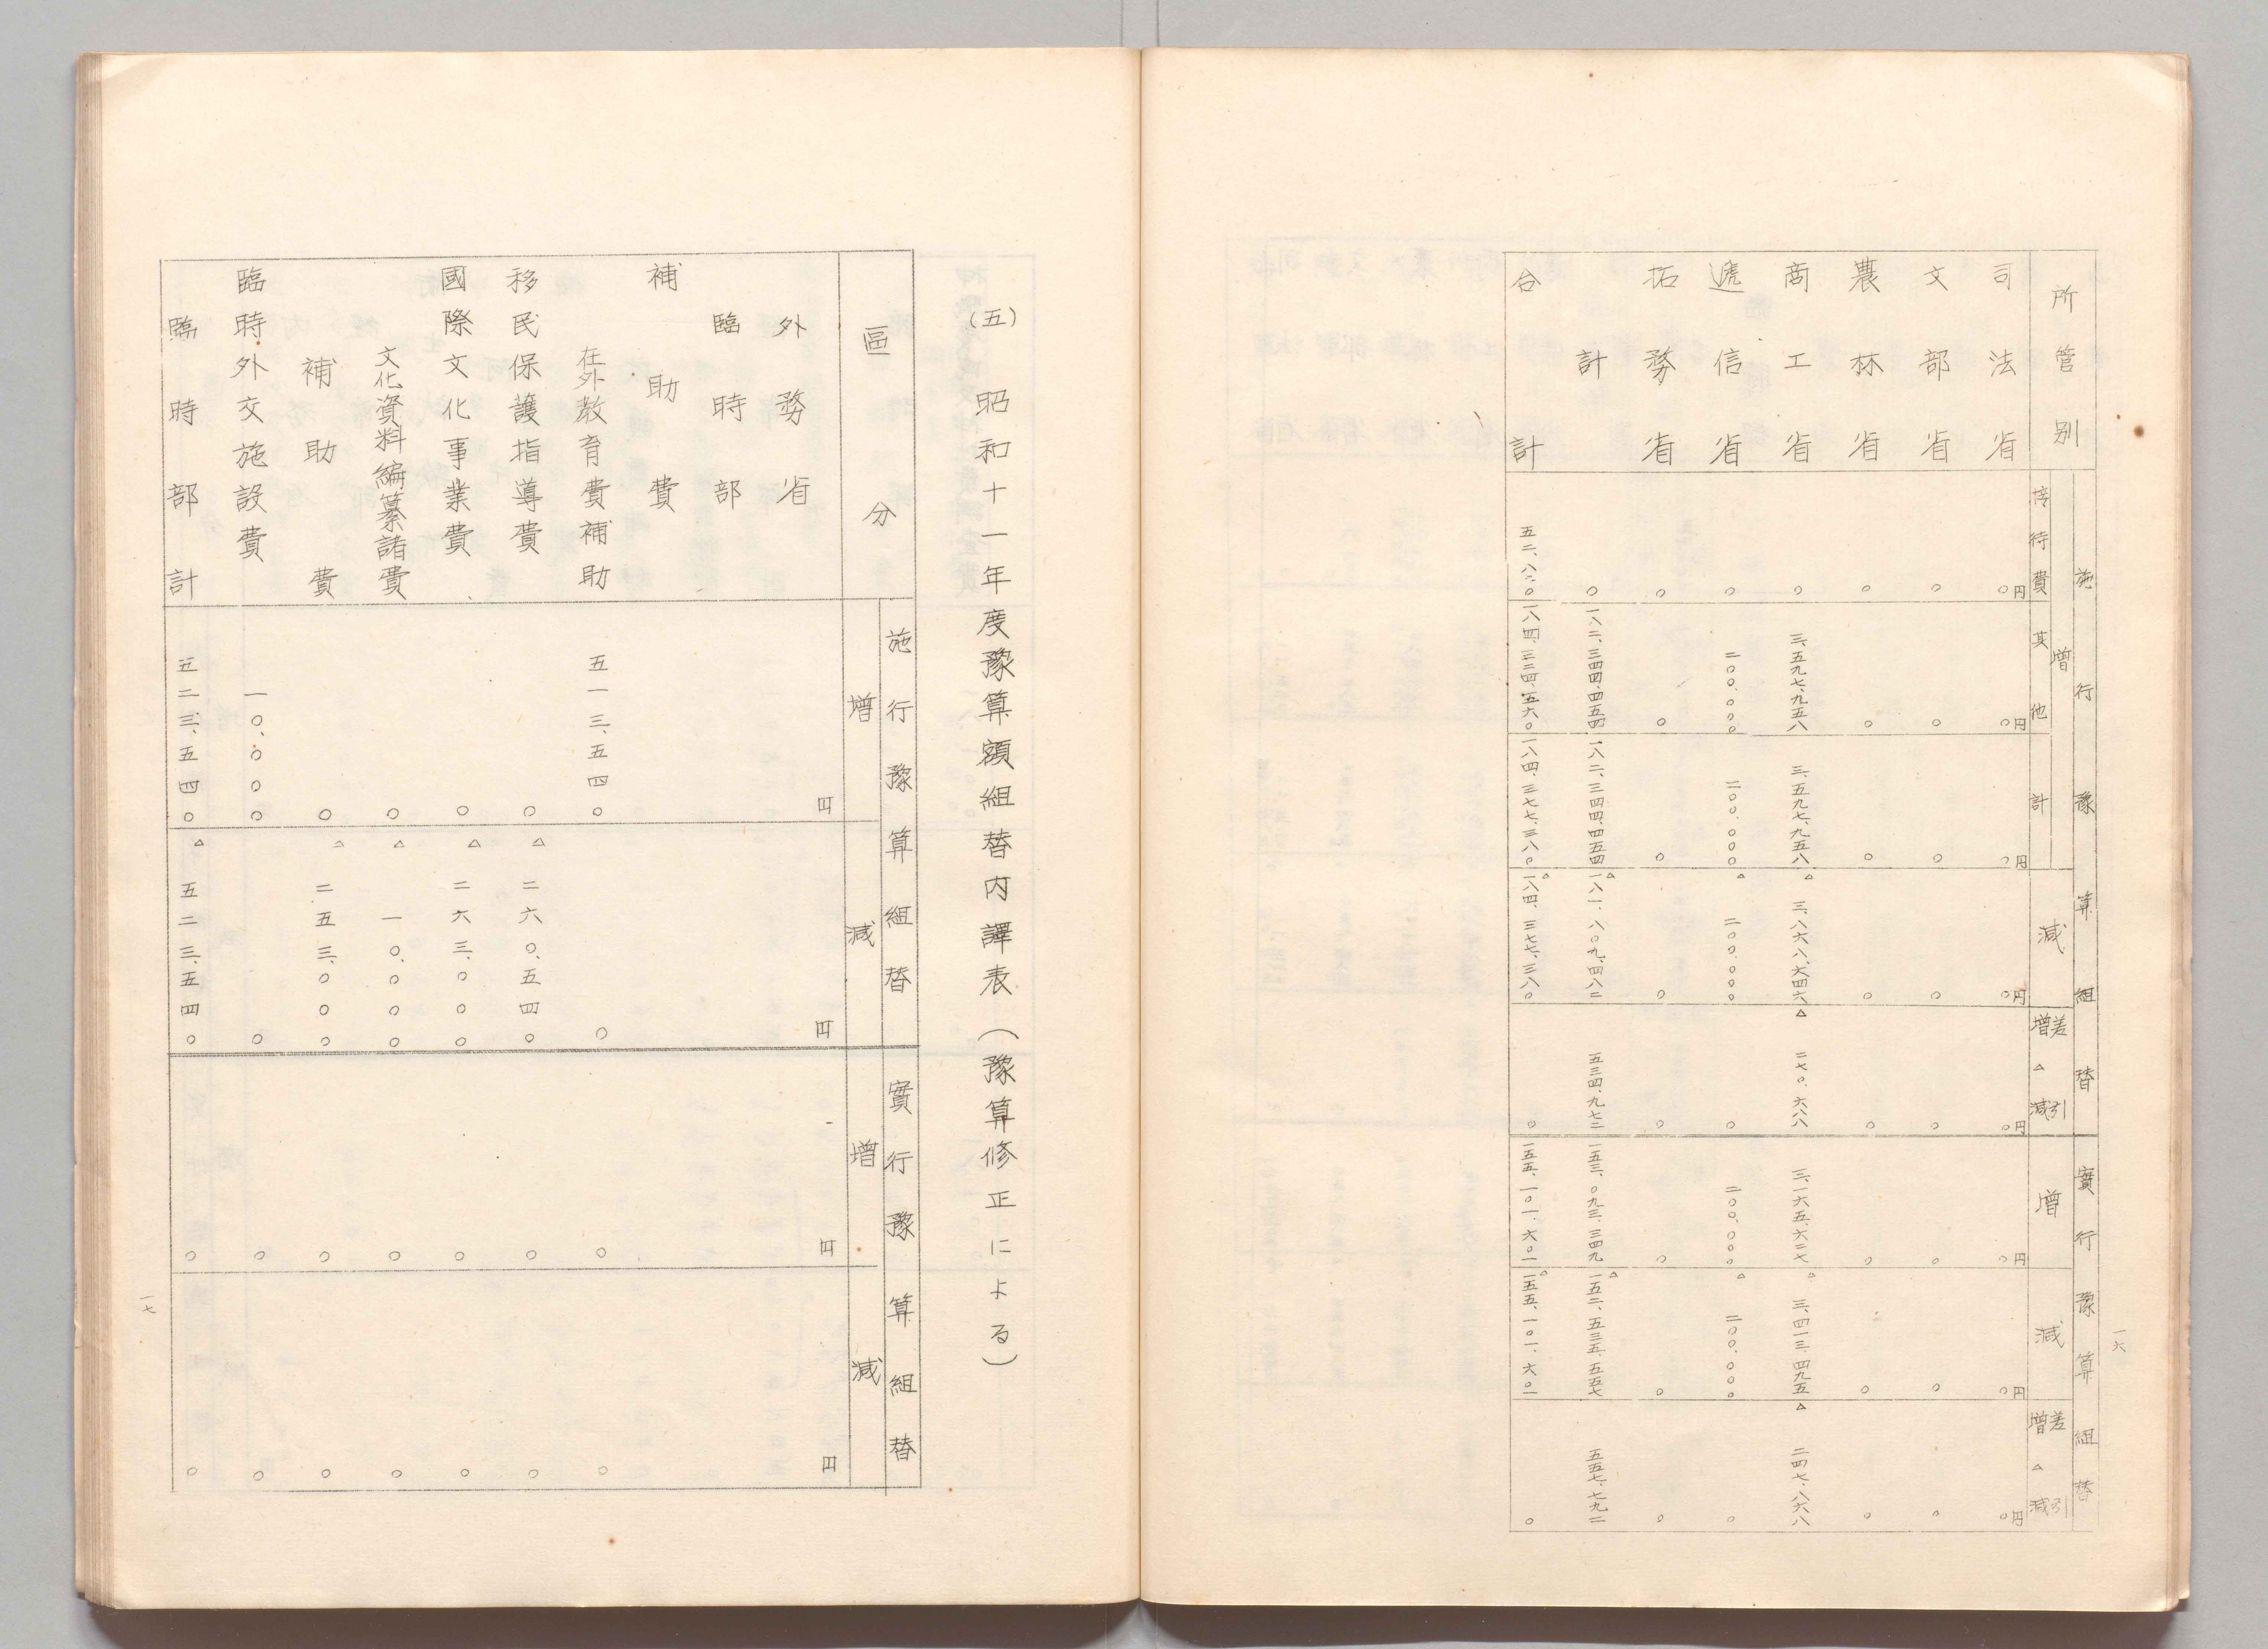 一六
所管別 施行豫算組替 實行豫算組替
増 減 差引増△減 増 減 差引増△減
接待費 其他 計
司法省 〇円 〇円 〇円 〇円 〇円 〇円 〇円 〇円
文部省 〇 〇 〇 〇 〇 〇 〇 〇
農林省 〇 〇 〇 〇 〇 〇 〇 〇
商工省 〇 三、五九七、九五八 三、五九七、九五八 △三、八六八、六四六 △二七〇、六八八 三、一六五、六二七 △三、四一三、四九五 △二四七、八六八
遞信省 〇 二〇〇、〇〇〇 二〇〇、〇〇〇 △二〇〇、〇〇〇 〇 二〇〇、〇〇〇 △二〇〇、〇〇〇 〇
拓務省 〇 〇 〇 〇 〇 〇 〇 〇
計 〇 一八二、三四四、四五四 一八二、三四四、四五四 △一八一、八〇九、四八二 五三四、九七二 一五三、〇九三、三四九 △一五二、五三五、五五七 五五七、七九二
合計 五二、八二〇 一八四、三二四、五六〇 一八四、三七七、三八〇 △一八四、三七七、三八〇 〇 一五五、一〇一、六〇一 △一五五、一〇一、六〇一 〇
(五) 昭和十一年度豫算額組替内譯表(豫算修正による)
區分 施行豫算組替 實行豫算組替
増 減 増 減
外務省 円 円 円 円
臨時部
補助費
在外敎育費補助 五一三、五四〇 〇 〇 〇
移民保護指導費 〇 △二六〇、五四〇 〇 〇
國際文化事業費 〇 △二六三、〇〇〇 〇 〇
文化資料編纂諸費 〇 △一〇、〇〇〇 〇 〇
補助費 〇 △二五三、〇〇〇 〇 〇
臨時外交施設費 一〇、〇〇〇 〇 〇 〇
臨時部計 五二三、五四〇 △五二三、五四〇 〇 〇
一七